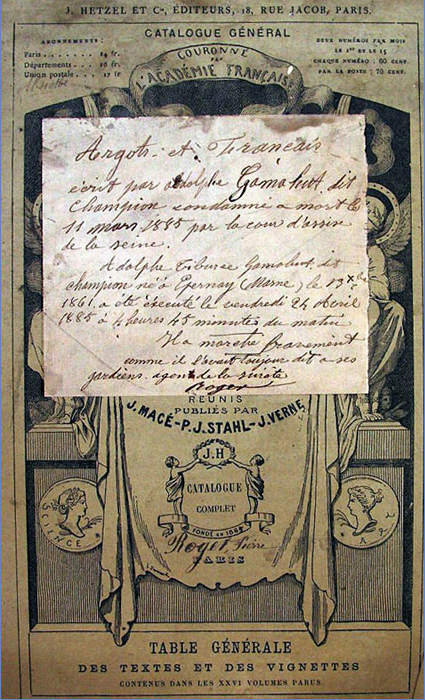 J. HETZEL ET Cie, ÉDITEURS, 18, RUE JACOB, PARIS.
CATALOGUE GÉNÉRAL
ABONNEMENTS :
Paris . . . . . 14 fr.
Départements . . . 16 fr.
Union postale . . . 17 fr
DEUX NUMÉROS PAR MOIS
LE 1er ET LE 15
CHAQUE NUMÉRO : 60 CENT.
PAR LA POSTE : 70 CENT.
COURONNÉ
PAR
L'ACADÉMIE FRANÇAISE
Argots et Francais
écrit par adolphe Gamahut dit
Champion condamné a mort le
11 mars 1885 par la cour d'assise
de la seine.
Adolphe Tiburce Gamahut dit
champion né à Epernay (Marne) le
1861. a été éxécuté le vendredi 24 Avril
1885 à 4 heures 45 minutes du matin
Il a marché bravement
comme il l'avait toujour dit a ses
gardiens. agent de la sureté
Roger
RÉUNIS
PUBLIÉS PAR
J. MACÉ-P.J. STAHL-J. VERNE
J.H
CATALOGUE
COMPLET
FONDÉ EN 1864
SCIENCE
ART
Roger Pierre
PARIS
TABLE GÉNÉRALE
DES TEXTES ET DES VIGNETTES
CONTENUS DANS LES XXVI VOLUMES PARUS